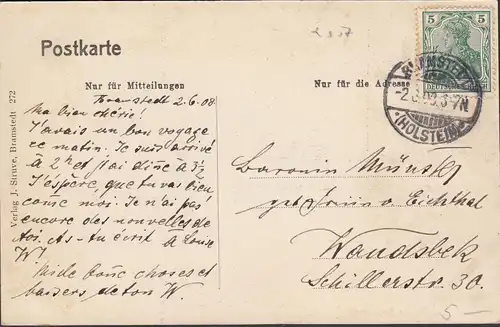 Postkarte
Nur für Mitteilungen
Nur für die Adresse
5 5
DEUTSCHES REICH
BRAMSTEDT
(HOLSTEIN)
Bramstedt 2.6.08
Ma bien chérie!
J'avais un bon voyage
ce matin. Je suis arrivé
à 2 h et j'ai diné à 3½
J'éspère, que tu vas bien
comme moi. Je n'ai pas
encore des nouvelles de
toi. As-tu écrit à
W?
Mille choses et
baisers de ton W.
Baronin Münster
geb. von Eichthal
Wandsbek
Schillerstr 30.
5-
Verlag J. Struve, Bramstedt 272